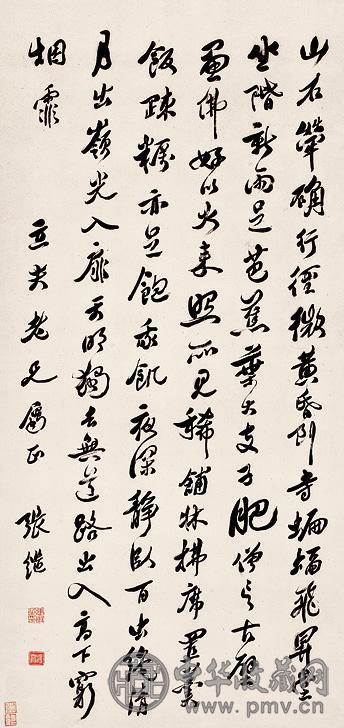 山石犖确行徑微黃昏到寺蝙蝠飛昇堂
坐階新雨足芭蕉葉大支子肥僧言古壁
畫佛好以火來照所見稀鋪牀拂席置羹
飯疎糲亦足飽我飢夜深靜臥百虫絕清
月出嶺光入扉天明獨去無道路出入高下窮
烟霏
立夫老兄屬正 張繼
中华收藏网
www.pmv.cn